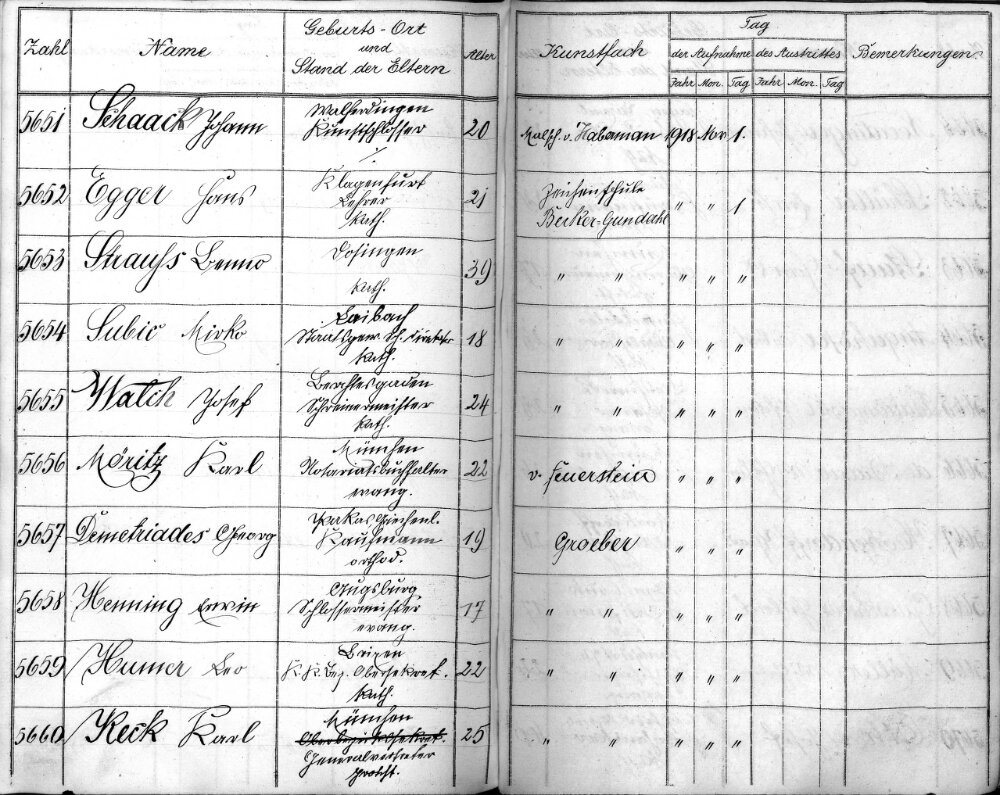 Zahl Name Geburts-Ort und Stand der Eltern Alter Kunstfach Tag der Aufnahme des Austrittes Bemerkungen.
Jahr Mon. Tag Jahr Mon. Tag
5651 Schaack Johann Walferdingen 20 v. Habermann 1918 Nov 1.
Kunstschlosser
5652 Egger Hans Klagenfurt 21 Zeichenschule „ „ 1
Lehrer Becker-Gundahl
kath.
5653 Strauss Benno Dosingen 39 „ „ „ „ „
kath.
5654 Subic Mirko Laibach 18 „ „ „ „ „
kath.
5655 Walch Josef Berchtesgaden 24 „ „ „ „ „
Schreinermeister
kath.
5656 Moritz Karl München 22 v. Feuerstein „ „ „
Notariatsbuchhalter
evang.
5657 Demetriades Georg 19 Groeber „ „ „
Kaufmann
orthod.
5658 Henning Erwin Augsburg 17 „ „ „ „ „
Schlossermeister
evang.
5659 Humer Leo Brixen 22 „ „ „ „ „
K. K. Bez. Obersekret.
kath.
5660 Keck Karl München 25 „ „ „ „ „
Generalvertreter
protest.